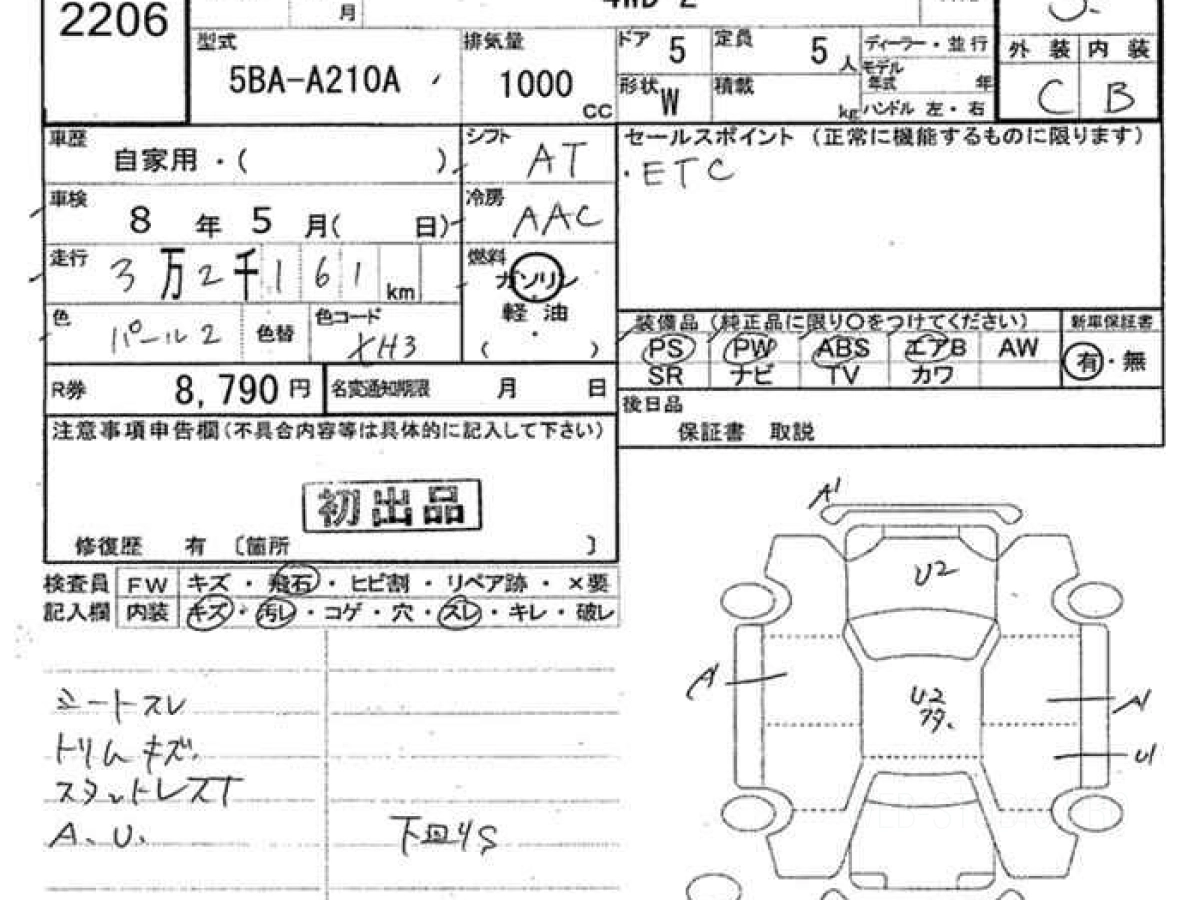 2206
月
4WD Z
型式
5BA-A210A
排気量
1000
CC
ドア 5
定員 5 人
ディーラー・並行
モデル年式 年
形状 W
積載 kg
ハンドル 左・右
外装 内装
C B
車歴
自家用・( )
シフト AT
セールスポイント (正常に機能するものに限ります)
・ETC
車検
8 年 5 月( 日)
冷房 AAC
走行
3万2千161km
燃料
ガソリン
軽油
( ・ )
色 パール2
色替
色コード XH3
装備品 (純正品に限り○をつけてください)
新車保証書
PS PW ABS エアB AW
有・無
SR ナビ TV カワ
R券 8,790円
名変通知期限 月 日
後日品
保証書 取説
注意事項申告欄(不具合内容等は具体的に記入して下さい)
初出品
修復歴 有 〔箇所 〕
検査員 FW キズ・飛石・ヒビ割・リペア跡・×要
記入欄 内装 キズ・汚レ・コゲ・穴・スレ・キレ・破レ
シートスレ
トリムキズ
スタットレスT
A、U、
下回りS
A1
U2
A1
U2
A1
U1